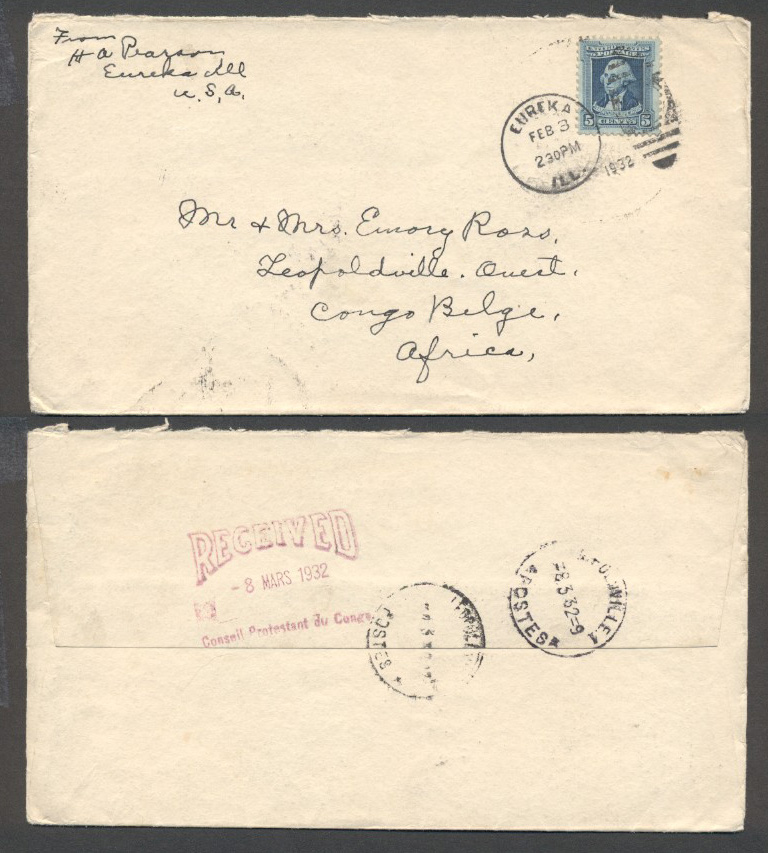 From
H A Pearson
Eureka Ill
U. S. A.
UNITED STATES
POSTAGE
5 CENTS 5
EUREKA
FEB 3
230PM
ILL.
1932
Mr & Mrs. Emory Ross,
Leopoldville. Ouest.
Congo Belge,
Africa,
RECEIVED
- 8 MARS 1932
Conseil Protestant du Congo
POSTES
POSTES
-8.3.32=9